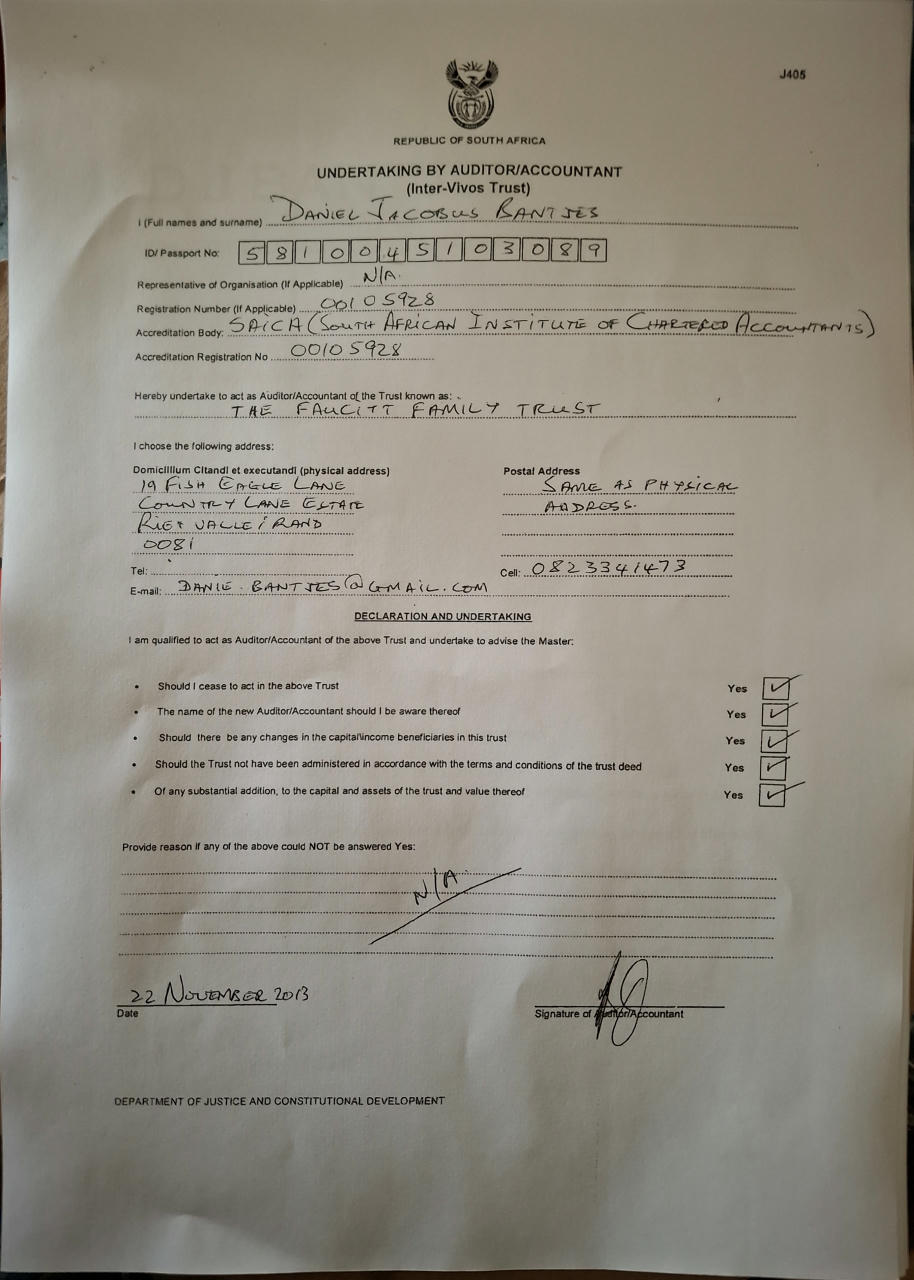 J405
REPUBLIC OF SOUTH AFRICA
UNDERTAKING BY AUDITOR/ACCOUNTANT
(Inter-Vivos Trust)
I (Full names and surname) DANIEL JACOBUS BANTJES
ID/ Passport No: 5810045103089
Representative of Organisation (If Applicable) N/A.
Registration Number (If Applicable) 00105928
Accreditation Body: SAICA (SOUTH AFRICAN INSTITUTE OF CHARTERED ACCOUNTANTS)
Accreditation Registration No 00105928
Hereby undertake to act as Auditor/Accountant of the Trust known as:
THE FAUCITT FAMILY TRUST
I choose the following address:
Domicillium Citandi et executandi (physical address) Postal Address
19 FISH EAGLE LANE SAME AS PHYSICAL
COUNTRY LANE ESTATE ADDRESS.
RIETVALLEIRAND
0081
Tel: Cell: 0823341473
E-mail: DANIE.BANTJES@GMAIL.COM
DECLARATION AND UNDERTAKING
I am qualified to act as Auditor/Accountant of the above Trust and undertake to advise the Master:
• Should I cease to act in the above Trust Yes ✓
• The name of the new Auditor/Accountant should I be aware thereof Yes ✓
• Should there be any changes in the capital\income beneficiaries in this trust Yes ✓
• Should the Trust not have been administered in accordance with the terms and conditions of the trust deed Yes ✓
• Of any substantial addition, to the capital and assets of the trust and value thereof Yes ✓
Provide reason if any of the above could NOT be answered Yes:
N/A.
22 NOVEMBER 2013
Date Signature of Auditor/Accountant
DEPARTMENT OF JUSTICE AND CONSTITUTIONAL DEVELOPMENT